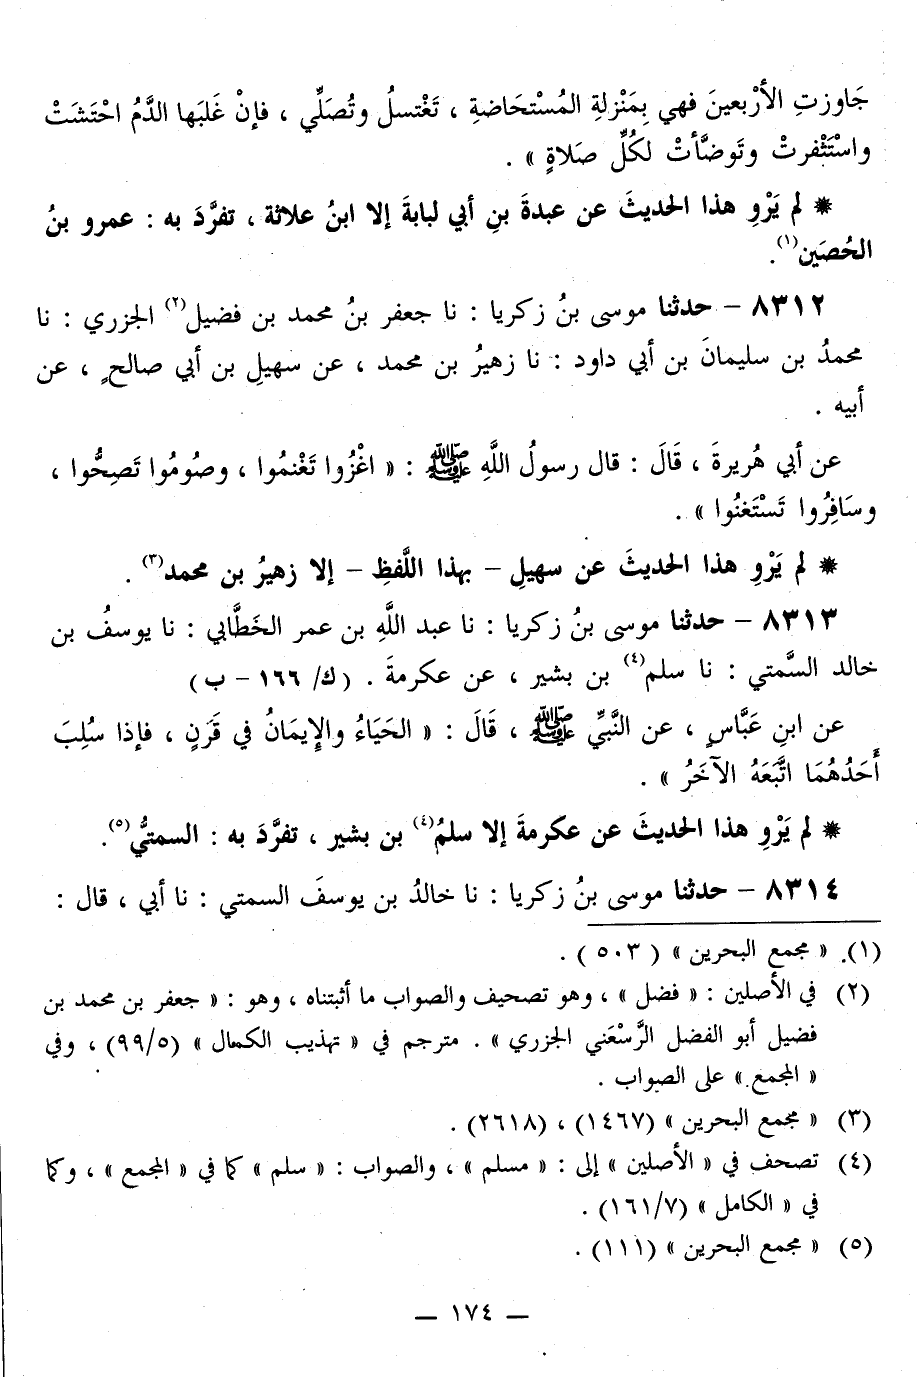 جَاوزتِ الأرْبعينَ فهي بِمَنْزلةِ المُسْتحَاضةِ ، تَغْتسلُ وتُصَلِّي ، فإنْ غَلبَها الدَّمُ احْتَشَتْ
واسْتَثْفرتْ وتَوضَّأتْ لكُلِّ صَلاةٍ » .
* لم يَرْوِ هذا الحديثَ عن عبدةَ بنِ أبي لبابةَ إلا ابنُ علاثة ، تفرَّدَ به : عمرو بنُ
الحُصَين(١).
٨٣١٢ – حدثنا موسى بنُ زكريا : نا جعفر بنُ محمد بن فضيل(٢) الجزري : نا
محمدُ بن سليمانَ بن أبي داود : نا زهيرُ بن محمد ، عن سهيلِ بن أبي صالحٍ ، عن
أبيه .
عن أبي هُريرةَ ، قَالَ : قال رسولُ اللَّهِ ﷺ : « اغْزُوا تَغْنمُوا ، وصُومُوا تَصِحُّوا ،
وسَافِرُوا تَسْتَغنُوا » .
* لم يَرْوِ هذا الحديثَ عن سهيلِ – بهذا اللَّفظِ – إلا زهيرُ بن محمد(٣) .
٨٣١٣ – حدثنا موسى بنُ زكريا : نا عبد اللَّهِ بن عمر الخَطَّابي : نا يوسفُ بن
خالد السَّمتي : نا سلم(٤) بن بشير ، عن عكرمةَ . (ك/ ١٦٦ – ب)
عن ابنِ عَبَّاسٍ ، عن النَّبيِّ ﷺ ، قَالَ : « الحَيَاءُ والإيمَانُ في قَرَنٍ ، فإذا سُلِبَ
أَحَدُهُمَا اتَّبَعَهُ الآخَرُ » .
* لم يَرْوِ هذا الحديثَ عن عكرمةَ إلا سلمُ(٤) بن بشير ، تفرَّدَ به : السمتيُّ(٥).
٨٣١٤ – حدثنا موسى بنُ زكريا : نا خالدُ بن يوسفَ السمتي : نا أبي ، قال :
(١). « مجمع البحرين » (٥٠٣) .
(٢) في الأصلين : « فضل » ، وهو تصحيف والصواب ما أثبتناه ، وهو : « جعفر بن محمد بن
فضيل أبو الفضل الرَّسْعَني الجزري » . مترجم في « تهذيب الكمال » (٩٩/٥) ، وفي
« المجمع » على الصواب .
(٣) « مجمع البحرين » (١٤٦٧) ، (٢٦١٨) .
(٤) تصحف في « الأصلين » إلى : « مسلم » ، والصواب : « سلم » كما في « المجمع » ، وكما
في « الكامل » (١٦١/٧) .
(٥) « مجمع البحرين » (١١١) .
— ١٧٤ —